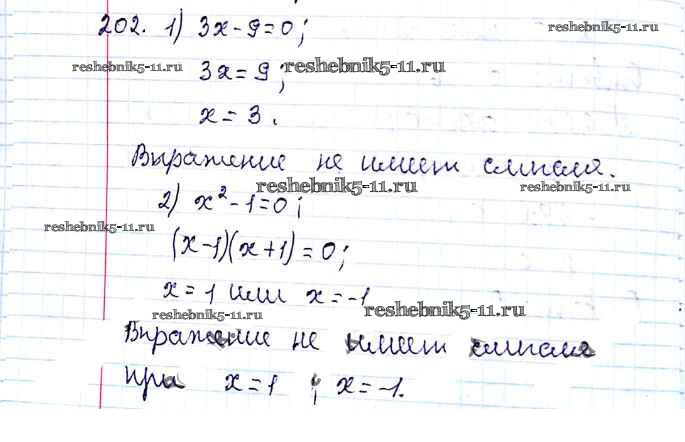 202. 1) 3x-9=0;
reshebnik5-11.ru
3x=9;
reshebnik5-11.ru
x=3.
Выражение не имеет смысла.
reshebnik5-11.ru
reshebnik5-11.ru
2) x²-1=0;
reshebnik5-11.ru
(x-1)(x+1)=0;
x=1 или x=-1
reshebnik5-11.ru
Выражение не имеет смысла
при x=1 ; x=-1.